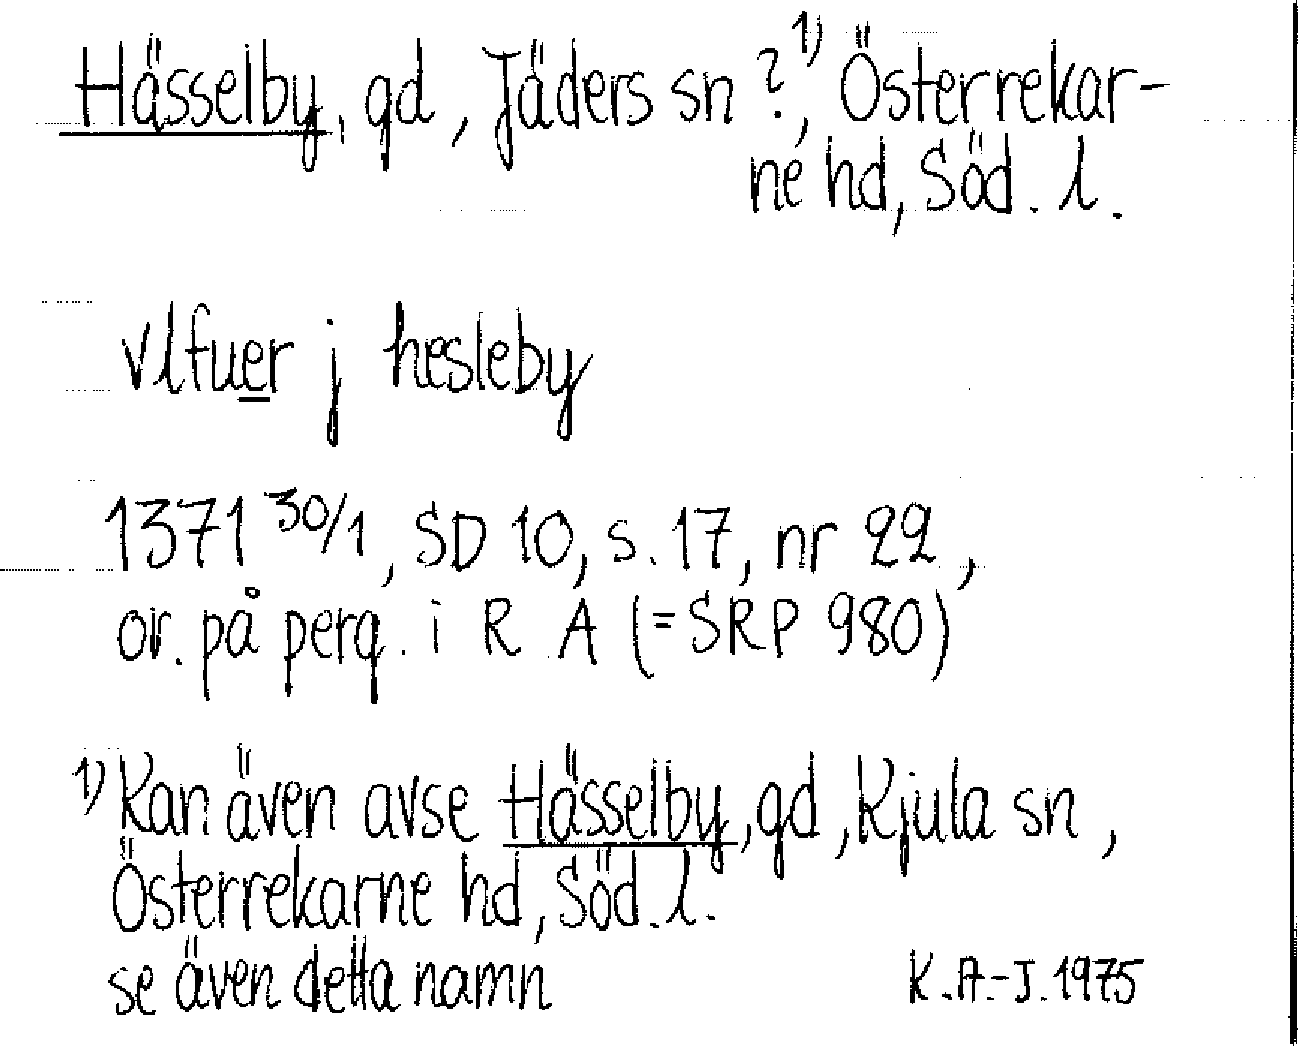 Hässelby, gd, Jäders sn ?¹⁾, Österrekar-
ne hd, Söd. l.
vlfuer j hesleby
1371 30/1, SD 10, s. 17, nr 22,
or. på perg. i R A (=SRP 980)
1) Kan även avse Hässelby, gd, Kjula sn,
Österrekarne hd, Söd. l.
se även detta namn
K.A.-J. 1975